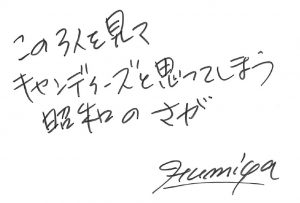 この3人を見て
キャンディーズと思ってしまう
昭和のさが
Fumiya